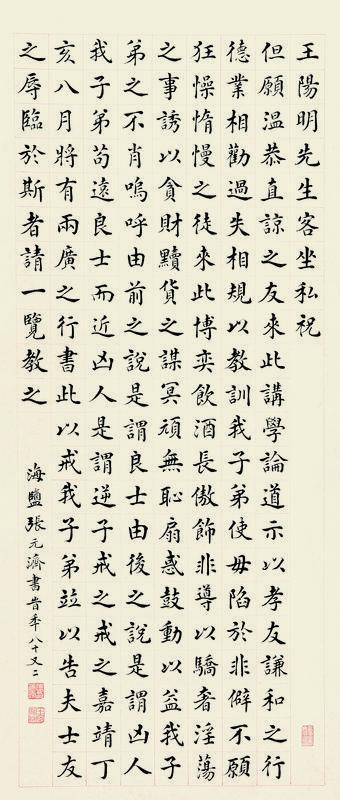 王陽明先生客坐私祝
但願溫恭直諒之友來此講學論道示以孝友謙和之行
德業相勸過失相規以教訓我子弟使毋陷於非僻不願
狂懆惰慢之徒來此博奕飲酒長傲飾非導以驕奢淫蕩
之事誘以貪財黷貨之謀冥頑無恥扇惑鼓動以益我子
弟之不肖嗚呼由前之說是謂良士由後之說是謂凶人
我子弟苟遠良士而近凶人是謂逆子戒之戒之嘉靖丁
亥八月將有兩廣之行書此以戒我子弟並以告夫士友
之辱臨於斯者請一覽教之
海鹽張元濟書旹年八十又二